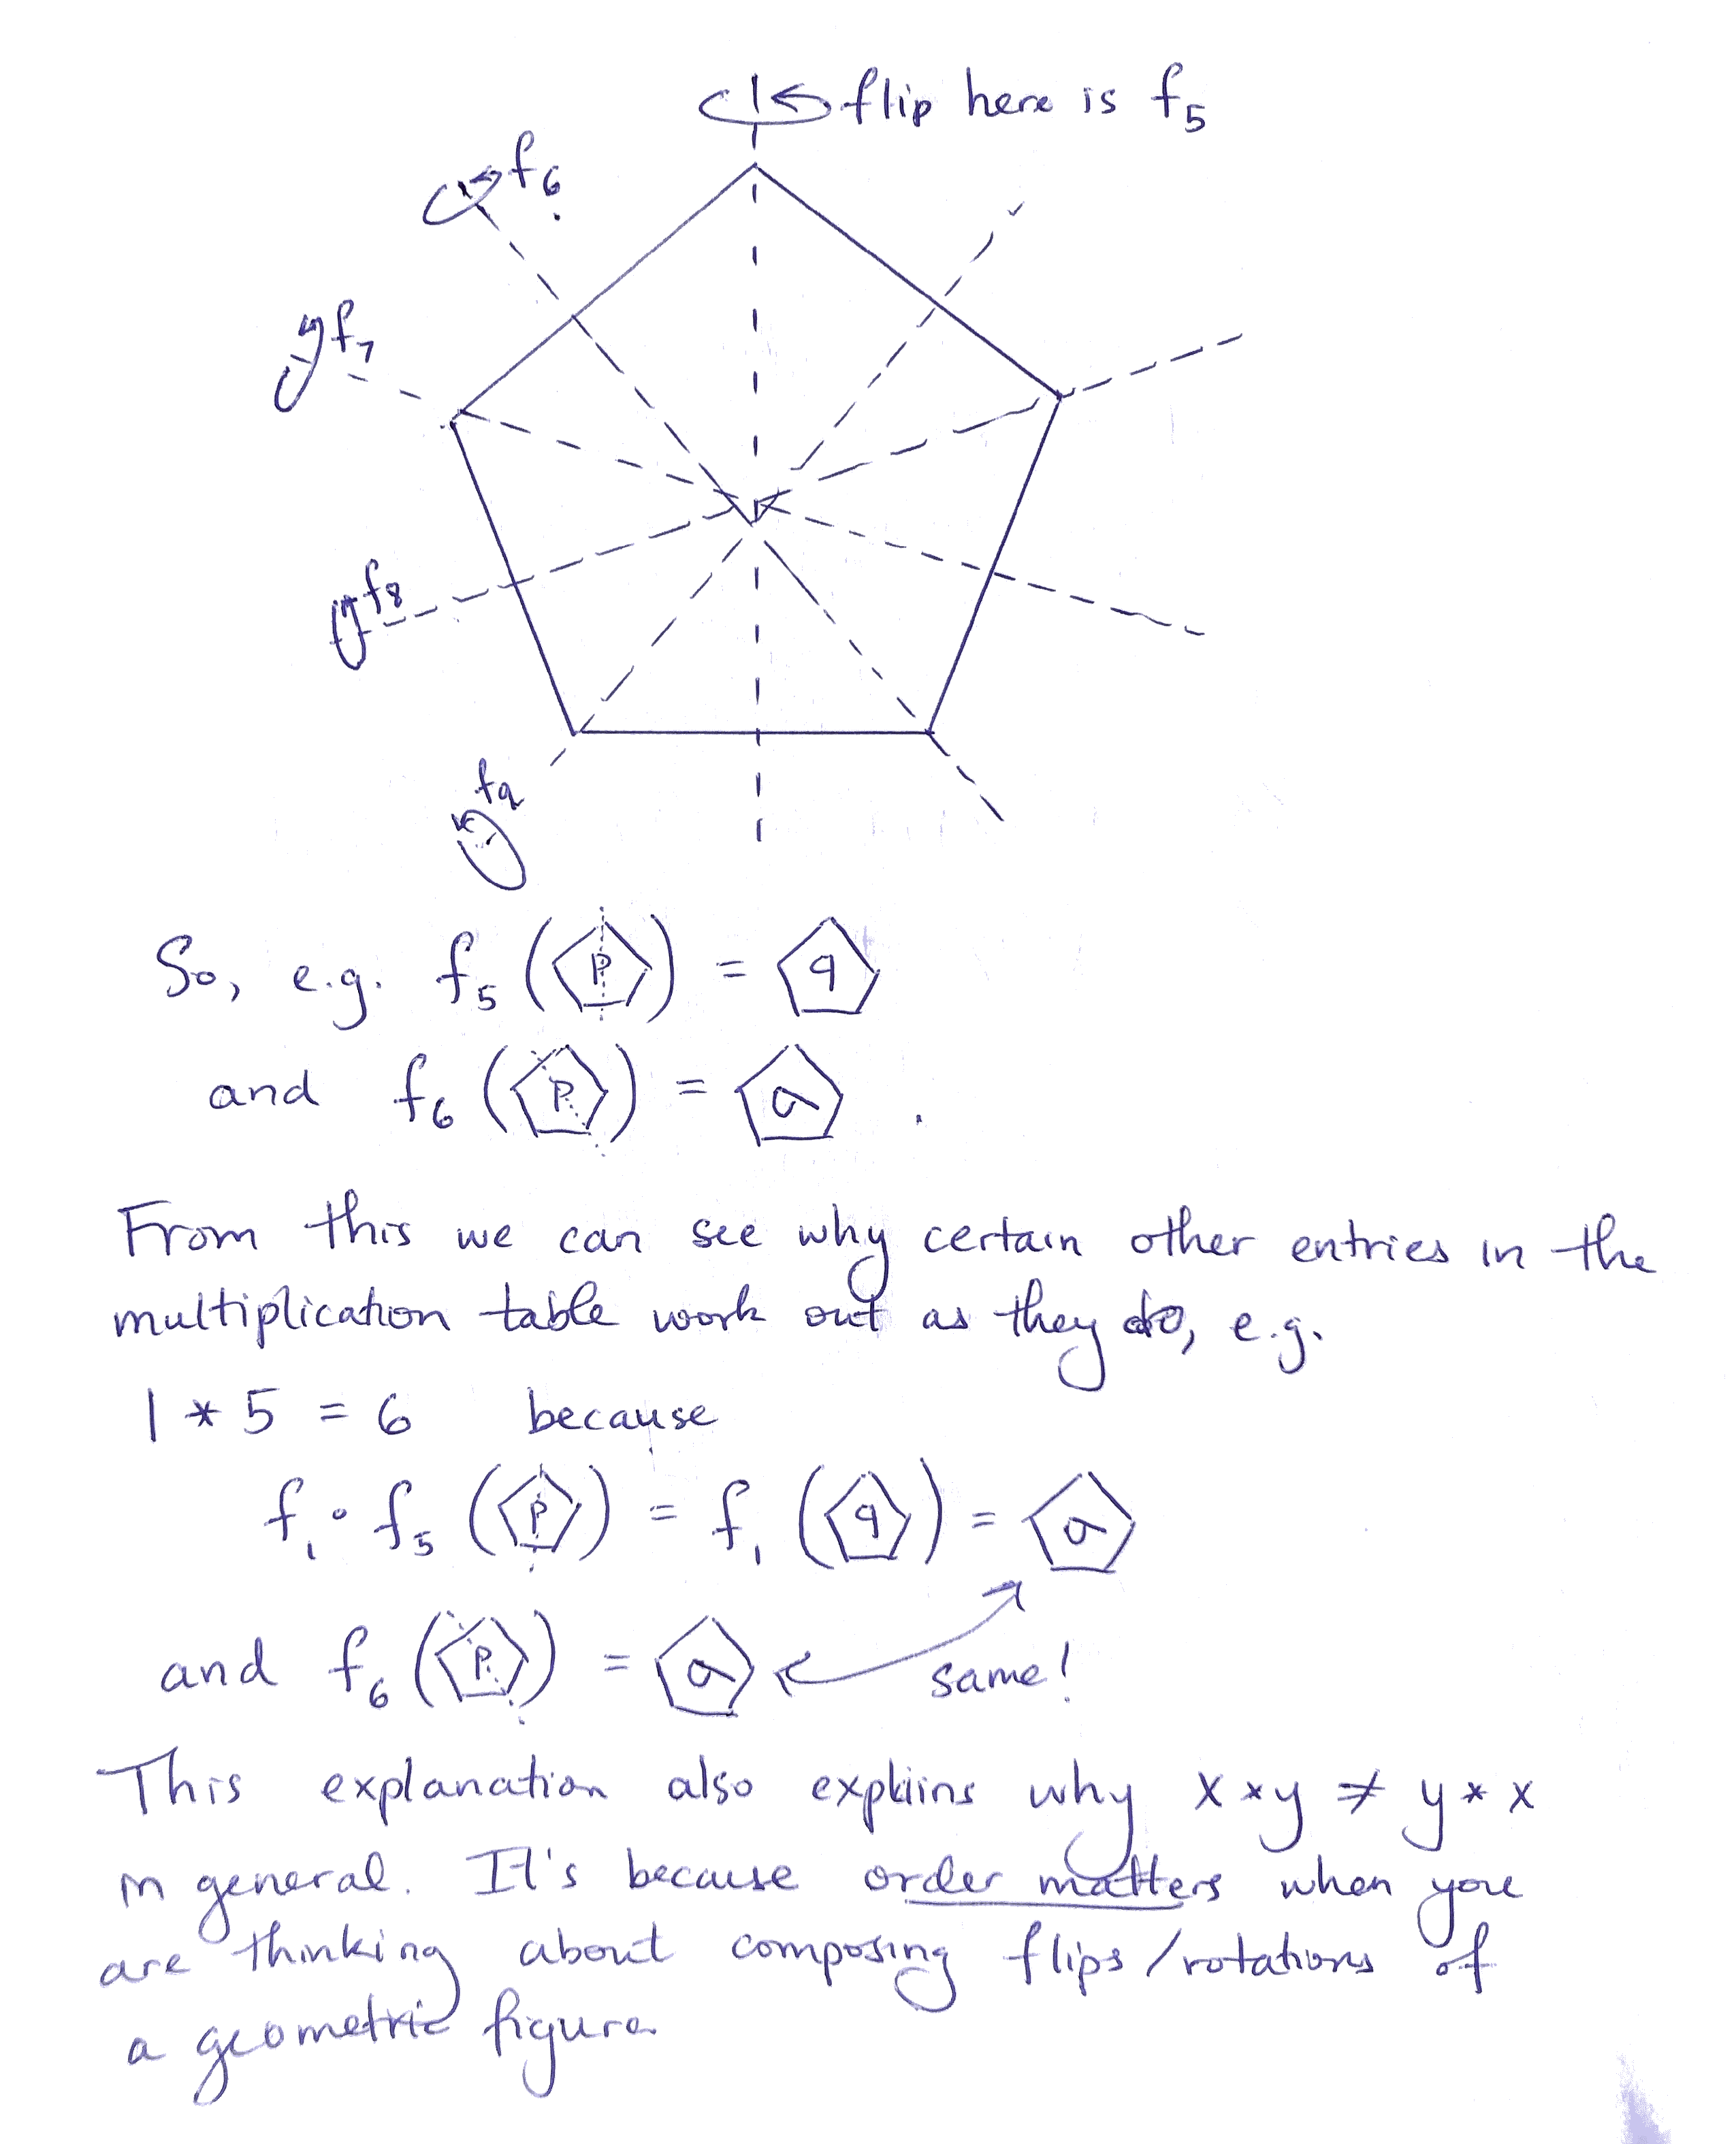 flip here is f₅
f₆
f₇
f₈
f₉
So, e.g. f₅ (p) = q
and f₆ (p) = a .
From this we can see why certain other entries in the
multiplication table work out as they do, e.g.
1 * 5 = 6 because
f₁ ∘ f₅ (p) = f₁ (q) = a
and f₆ (p) = a same!
This explanation also expliins why x * y ≠ y * x
in general. It's because order matters when you
are thinking about composing flips/rotations of
a geometric figure.